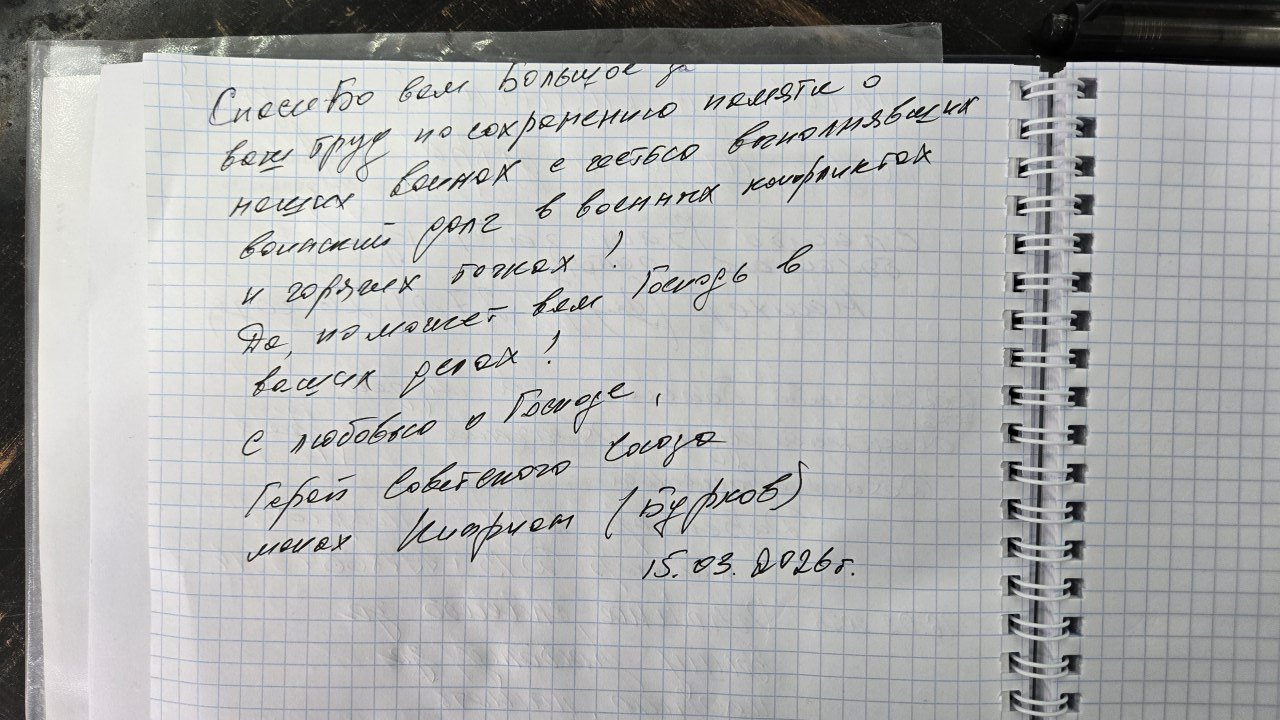 Спасибо вам большое за
ваш труд по сохранению памяти о
наших воинах с честью выполнявших
воинский долг в военных конфликтах
и горячих точках!
Да, поможет вам Господь в
ваших делах!
С любовью о Господе,
Герой Советского Союза
монах Киприан (Бурков)
15.03.2026г.